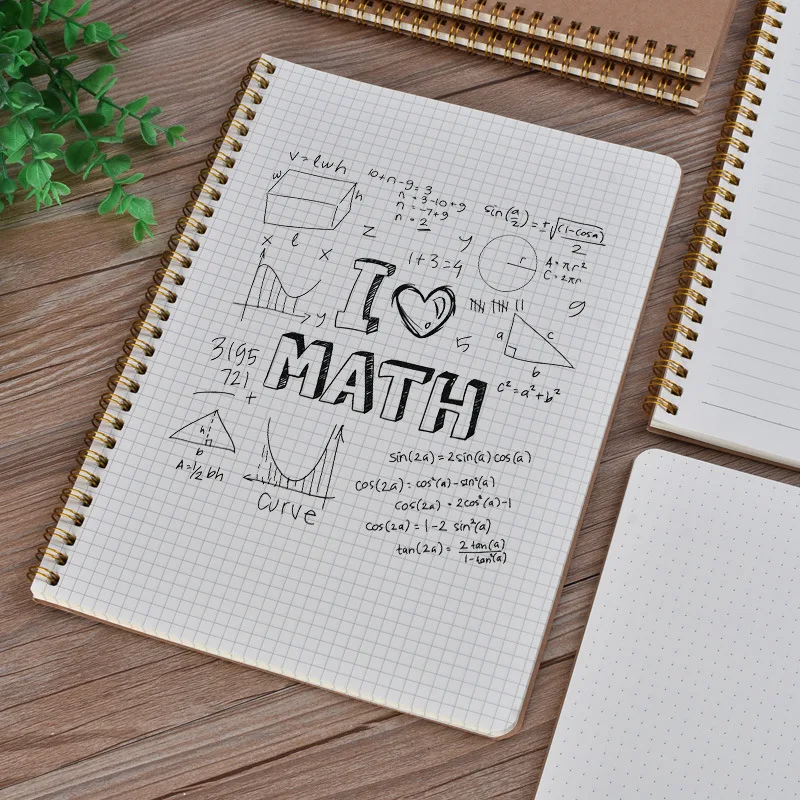 V = lwh
w
h
l
10+n-9=3
n = 3-10+9
n = -7+9
n = 2
sin(a/2) = ±√(1-cosa)/2
X
X
Z
y
1+3=4
r
A = πr²
C = 2πr
y
I
5
9
a
c
b
C² = a² + b²
MATH
3195
721
+
h
b
A = 1/2 bh
Curve
sin(2a) = 2sin(a) cos(a)
cos(2a) = cos²(a) - sin²(a)
cos(2a) = 2cos²(a) - 1
cos(2a) = 1-2 sin²(a)
tan(2a) = 2 tan(a)/1-tan²(a)